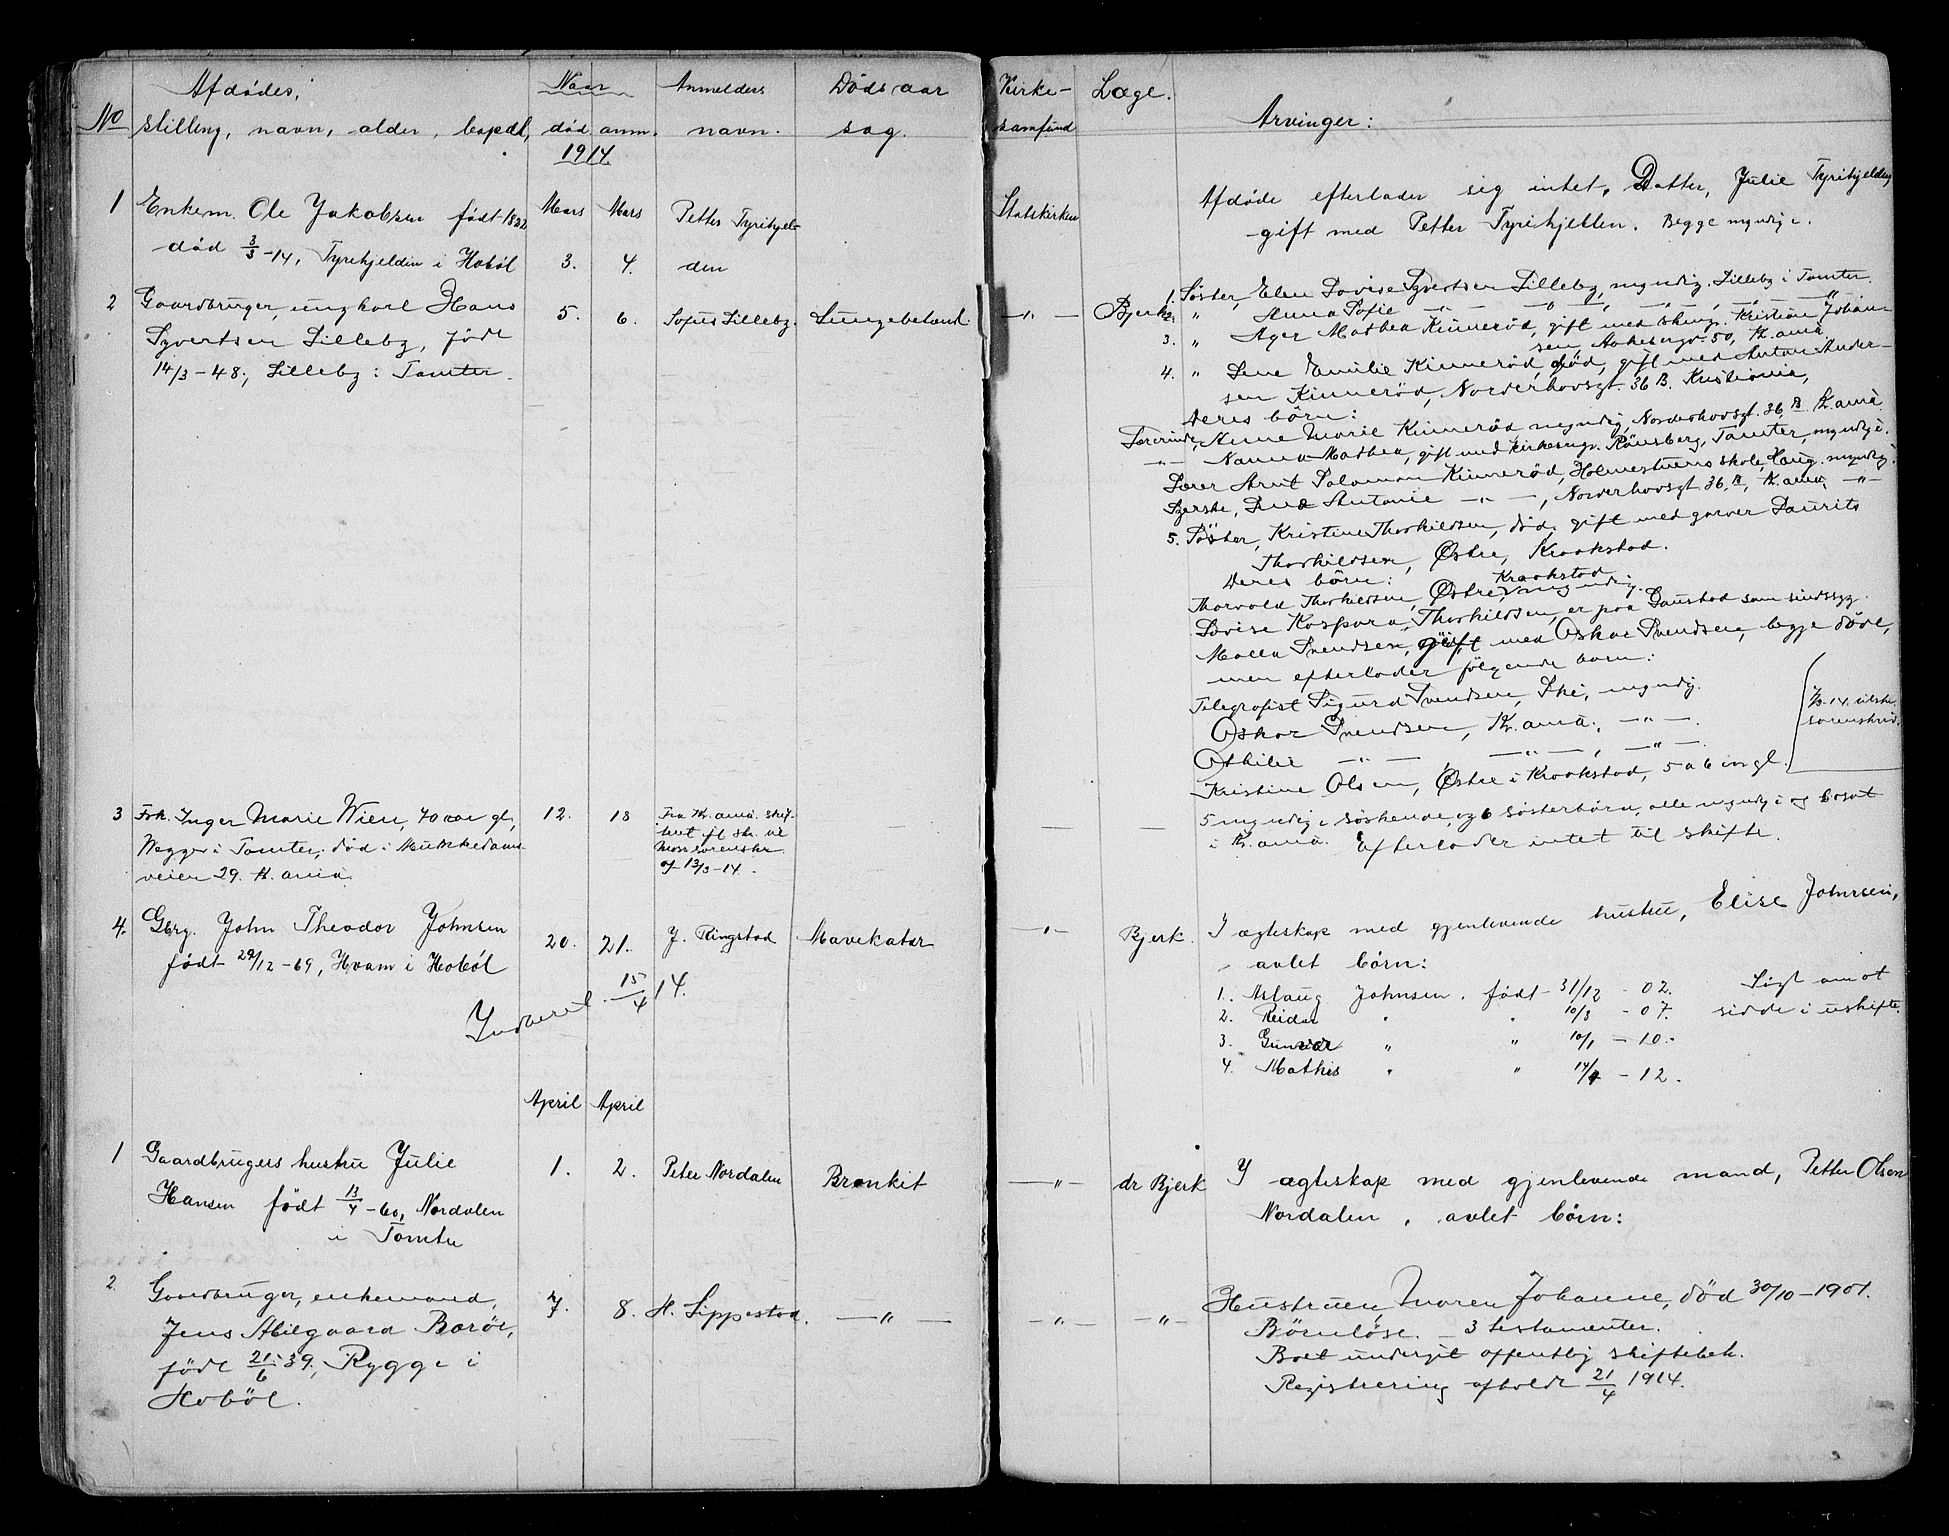 No
Afdødes,
stilling, navn, alder, bopæl,
Naar
død. anm.
1914.
Anmelders
navn.
Dødsaar
sag.
Kirke-
samfund
Læge.
Arvinger:
1 Enkem. Ole Jakobsen født 1822
død 3/3 -14, Tyrihjelden i Hobøl
Mars Mars
3. 4.
Petter Tyrihjel-
den
Statskirken
Afdøde efterlader sig intet. Datter, Julie Tyrihjelden,
gift med Petter Tyrihjellen. Begge myndige.
2 Gaardbruger, ungkarl Hans
Syvertsen Lilleby, født
14/3 - 48, Lilleby i Tomter.
5. 6.
Sofus Lilleby.
Lungebetænd.
—"—
Bjerk
1. Søster, Elen Lovise Syvertsen Lilleby, myndig. Lilleby i Tomter.
2. " Anna Sofie —"— —"—, —"—, —"—
3. " Ager Mathea Kinnerød, gift med Kristian Johan-
sen Aakebergv. 50, Kr.ania.
4. " Lene Emilie Kinnerød, død, gift med Anton Ander-
sen Kinnerød, Norderhovsgt. 36 B. Kristiania,
Deres børn:
Lærerinde, Anne Marie Kinnerød myndig, Norderhovsgt. 36 B Kr.ania
—"— Nanna Mathea, gift med kirkesngr. Rønsberg, Tomter, myndig.
Lærer Arnt Salomon Kinnerød, Holmestuens skole, Haug. myndig.
Syerske, Lina Antonie —"—, Norderhovsgt. 36 B, Kr.ania, —"—
5. Søster, Kristine Thorkildsen, død, gift med garver Laurits
Thorkildsen, Østre, Kraakstad.
Deres børn:
Kraakstad
Thorvald Thorkildsen, Østre, myndig.
Lovise Kaspara Thorkildsen, er paa Gaustad som sindssyg.
Malla Svendsen, gift med Oskar Svendsen, begge døde,
men efterlader følgende barn:
Telegrafist Sigurd Svendsen, Ski, myndig.
Oskar Svendsen, Kr.ania. —"—.
Othilie —"— —"—, —"—.
Kristine Olsen, Østre i Kraakstad, 5 a 6 in gl.
3 Frk. Inger Marie Wien, 40 aar gl,
Negger i Tomter, død i Munkedams-
veien 29. Kr.ania
12. 18
Fra Kr.ania skif-
teret
Moss sorenskr.
af 13/3 -14.
—
—
5 myndige søskende, og 6 søsterbørn, alle myndige og bosat
i Kr.ania. Efterlader intet til skifte.
4. Gbrg. John Theodor Johnsen
født 29/12 - 69, Hvam i Hobøl
20. 21.
J. Ringstad
Mavekatar
—"—
Bjerk.
I ægteskap med gjenlevende hustru, Elise Johnsen,
avlet børn:
1. Aslaug Johnsen. født 31/12 - 02.
2. Reidar " " 10/3 - 07.
3. Gunvor " " 10/1 - 10.
4. Mathis " " 14/4 - 12.
Søgt om at
sidde i uskifte.
15/4 14.
April April
1 Gaardbrugers hustru Julie
Hansen født 13/4 - 60, Nordalen
i Tomter
1. 2.
Peter Nordalen
Bronkit
—"—
dr Bjerk
I ægteskap med gjenlevende mand, Petter Olsen
Nordalen, avlet børn:
2 Gaardbruger, enkemand,
Jens Abilgaard Borør,
født 21/6 - 39, Rygge i
Hobøl.
7. 8.
H. Lippestad.
—"—
—"—
—"—
Hustruen, Maren Johanne, død 30/10 - 1901.
Børnløse. 3 testamenter.
Boet undergit offentlig skiftebeh.
Registrering afholdt 21/4 1914.